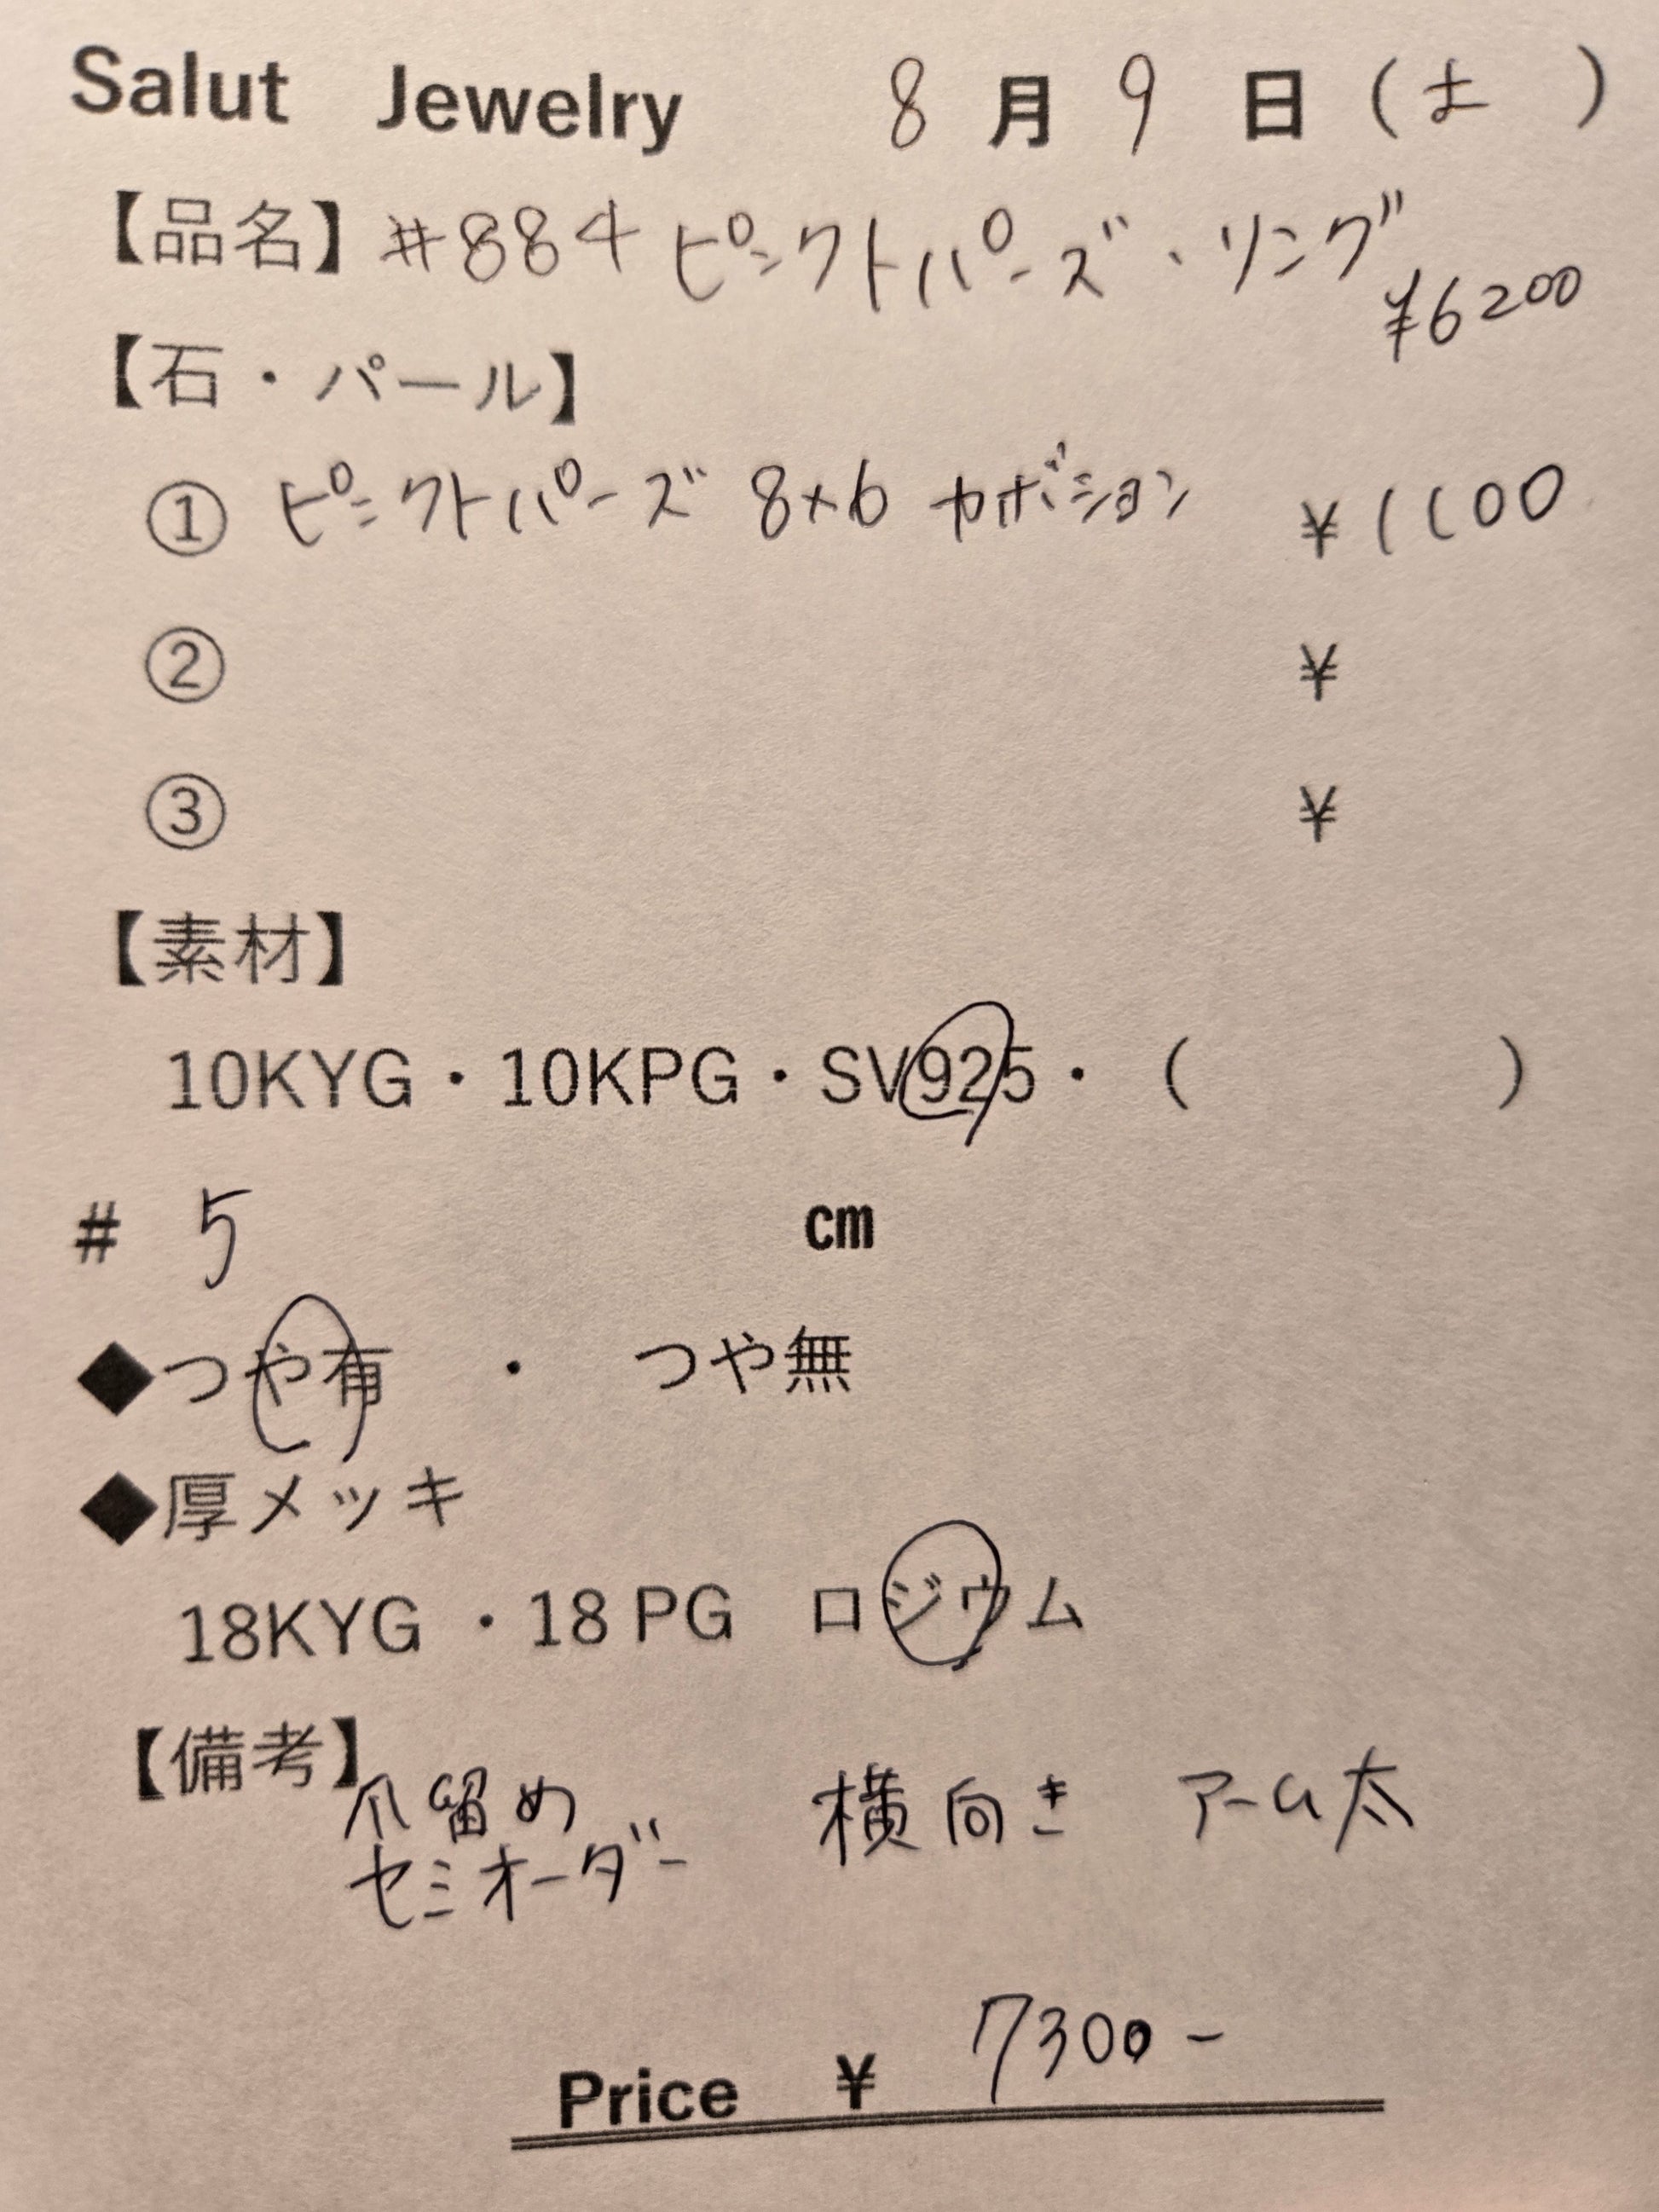 Salut Jewelry 8月9日(土)
【品名】#884 ピンクトパーズ・リング
¥6200
【石・パール】
① ピンクトパーズ 8×6 カボション ¥1100
② ¥
③ ¥
【素材】
10KYG・10KPG・SV925・( )
# 5 cm
◆つや有 ・ つや無
◆厚メッキ
18KYG ・18 PG ロジウム
【備考】
爪留め 横向き アーム太
セミオーダー
Price ¥ 7300-